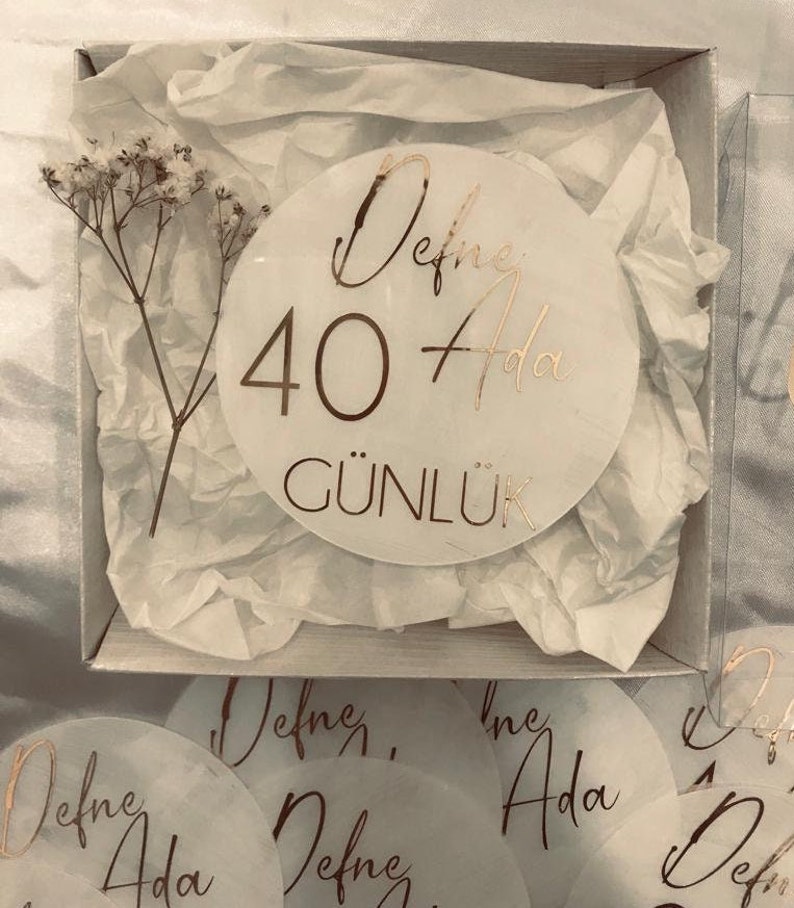 Defne
40 Ada
GÜNLÜK
Defne
Ada
Defne
Ada
Defne
Defne